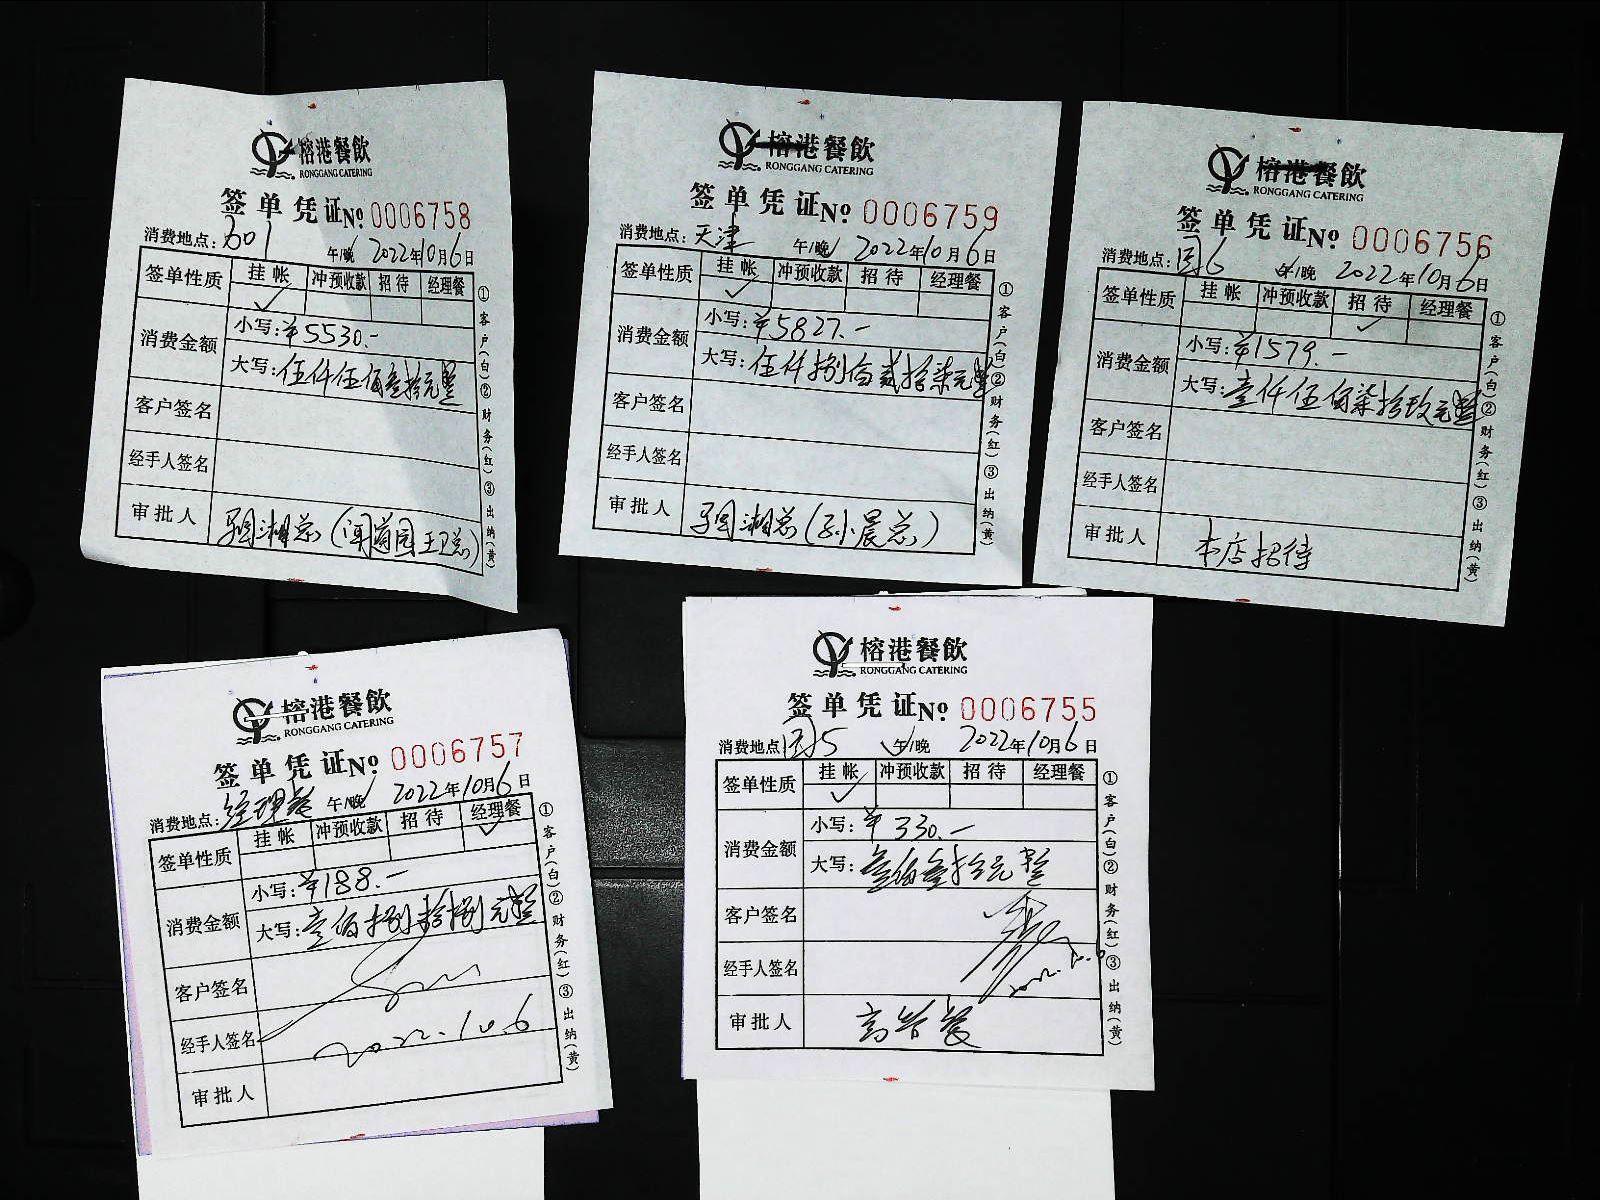 榕港餐飲
RONGGANG CATERING
签单凭证 № 0006758
消费地点：301 午/晚 2022年10月6日
签单性质 挂帐 冲预收款 招待 经理餐
✓
消费金额 小写：¥5530.-
大写：伍仟伍佰叁拾元整
客户签名
经手人签名
审批人 湘总（ 王卫总）
①客户(白)②财务(红)③出纳(黄)
榕港餐飲
RONGGANG CATERING
签单凭证 № 0006759
消费地点：天津 午/晚 2022年10月6日
签单性质 挂帐 冲预收款 招待 经理餐
✓
消费金额 小写：¥5827.-
大写：伍仟捌佰贰拾柒元整
客户签名
经手人签名
审批人 湘总（孙晨总）
①客户(白)②财务(红)③出纳(黄)
榕港餐飲
RONGGANG CATERING
签单凭证 № 0006756
消费地点：园6 午/晚 2022年10月6日
签单性质 挂帐 冲预收款 招待 经理餐
✓
消费金额 小写：¥1579.-
大写：壹仟伍佰柒拾玖元整
客户签名
经手人签名
审批人 本店招待
①客户(白)②财务(红)③出纳(黄)
榕港餐飲
RONGGANG CATERING
签单凭证 № 0006757
消费地点：经理餐 午/晚 2022年10月6日
签单性质 挂帐 冲预收款 招待 经理餐
✓
消费金额 小写：¥188.-
大写：壹佰捌拾捌元整
客户签名
经手人签名 2022.10.6
审批人
①客户(白)②财务(红)③出纳(黄)
榕港餐飲
RONGGANG CATERING
签单凭证 № 0006755
消费地点：园5 午/晚 2022年10月6日
签单性质 挂帐 冲预收款 招待 经理餐
✓
消费金额 小写：¥330.-
大写：叁佰叁拾元整
客户签名
经手人签名 2022.10.6
审批人
①客户(白)②财务(红)③出纳(黄)